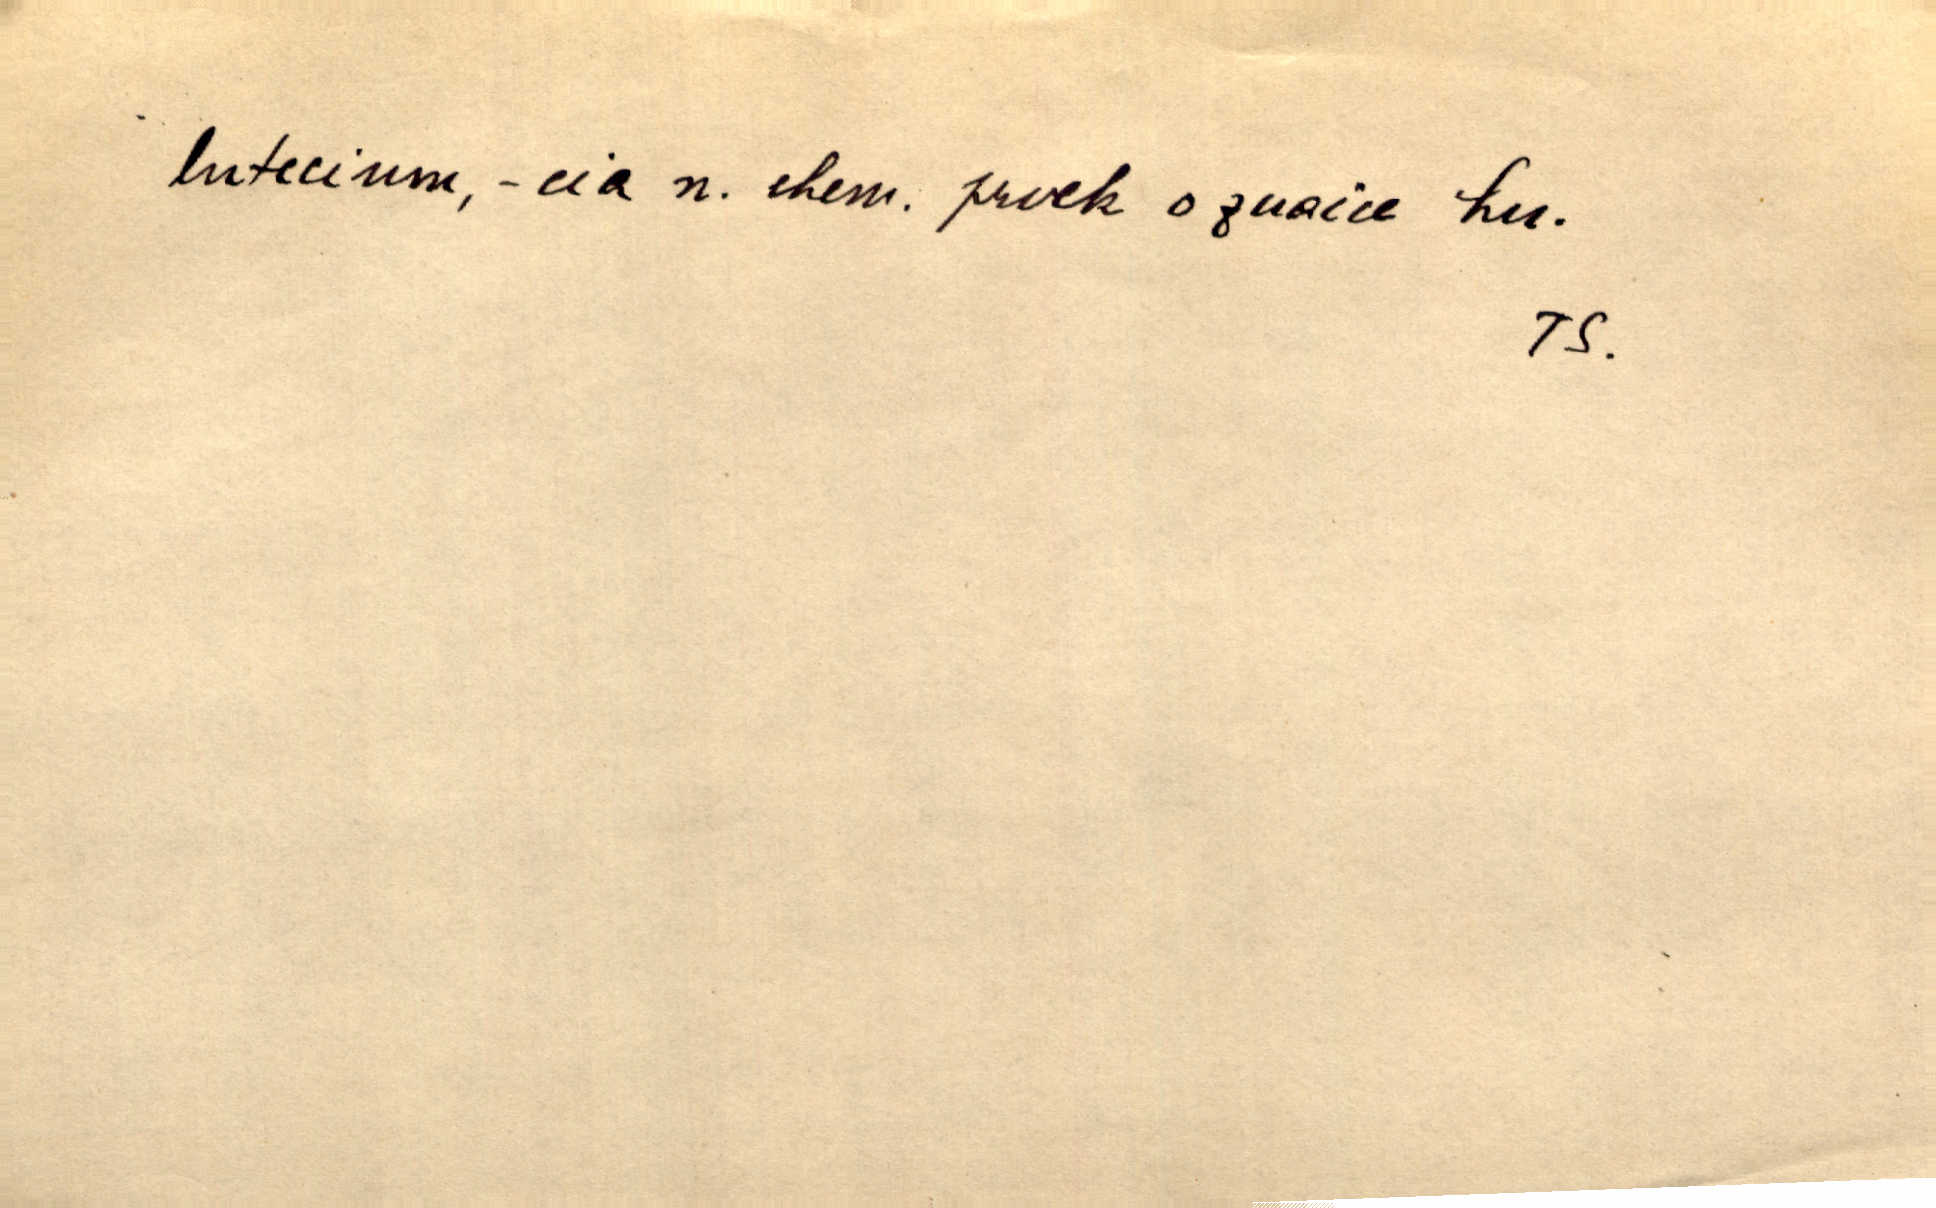 lutecium, -cia n. chem. prvek o značce Lu.
TS.